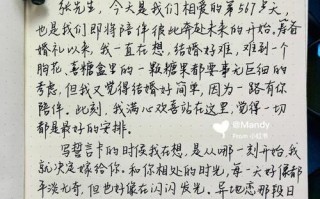 张先生，今天是我们相爱的第567天，
也是我们即将陪伴彼此奔赴未来的开始。筹备
婚礼以来，我一直在想，结婚好难，难到一个
胸花、喜糖盒里的一颗糖果都要事无巨细的
考虑，但我又觉得结婚好简单，因为一路有你
陪伴。此刻，我满心欢喜站在这里，觉得一切
都是最好的安排。
@Mandy
From 小红书
写誓言卡的时候我在想，是从哪一刻开始我
就决定嫁给你。和你相处的时光，每一天好像都
平淡无奇，但也好像在闪闪发光。异地恋那段日